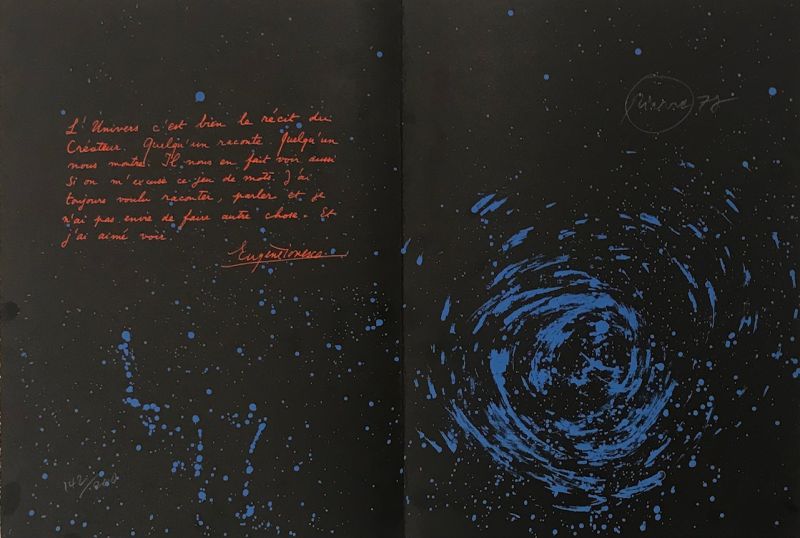 L'Univers c'est bien le récit du
Créateur. Quelqu'un raconte. Quelqu'un
nous montre. Il nous en fait voir aussi
si on m'excuse ce jeu de mots. J'ai
toujours voulu raconter, parler et je
n'ai pas envie de faire autre chose. Et
j'ai aimé voir
Eugène Ionesco
78
142/200